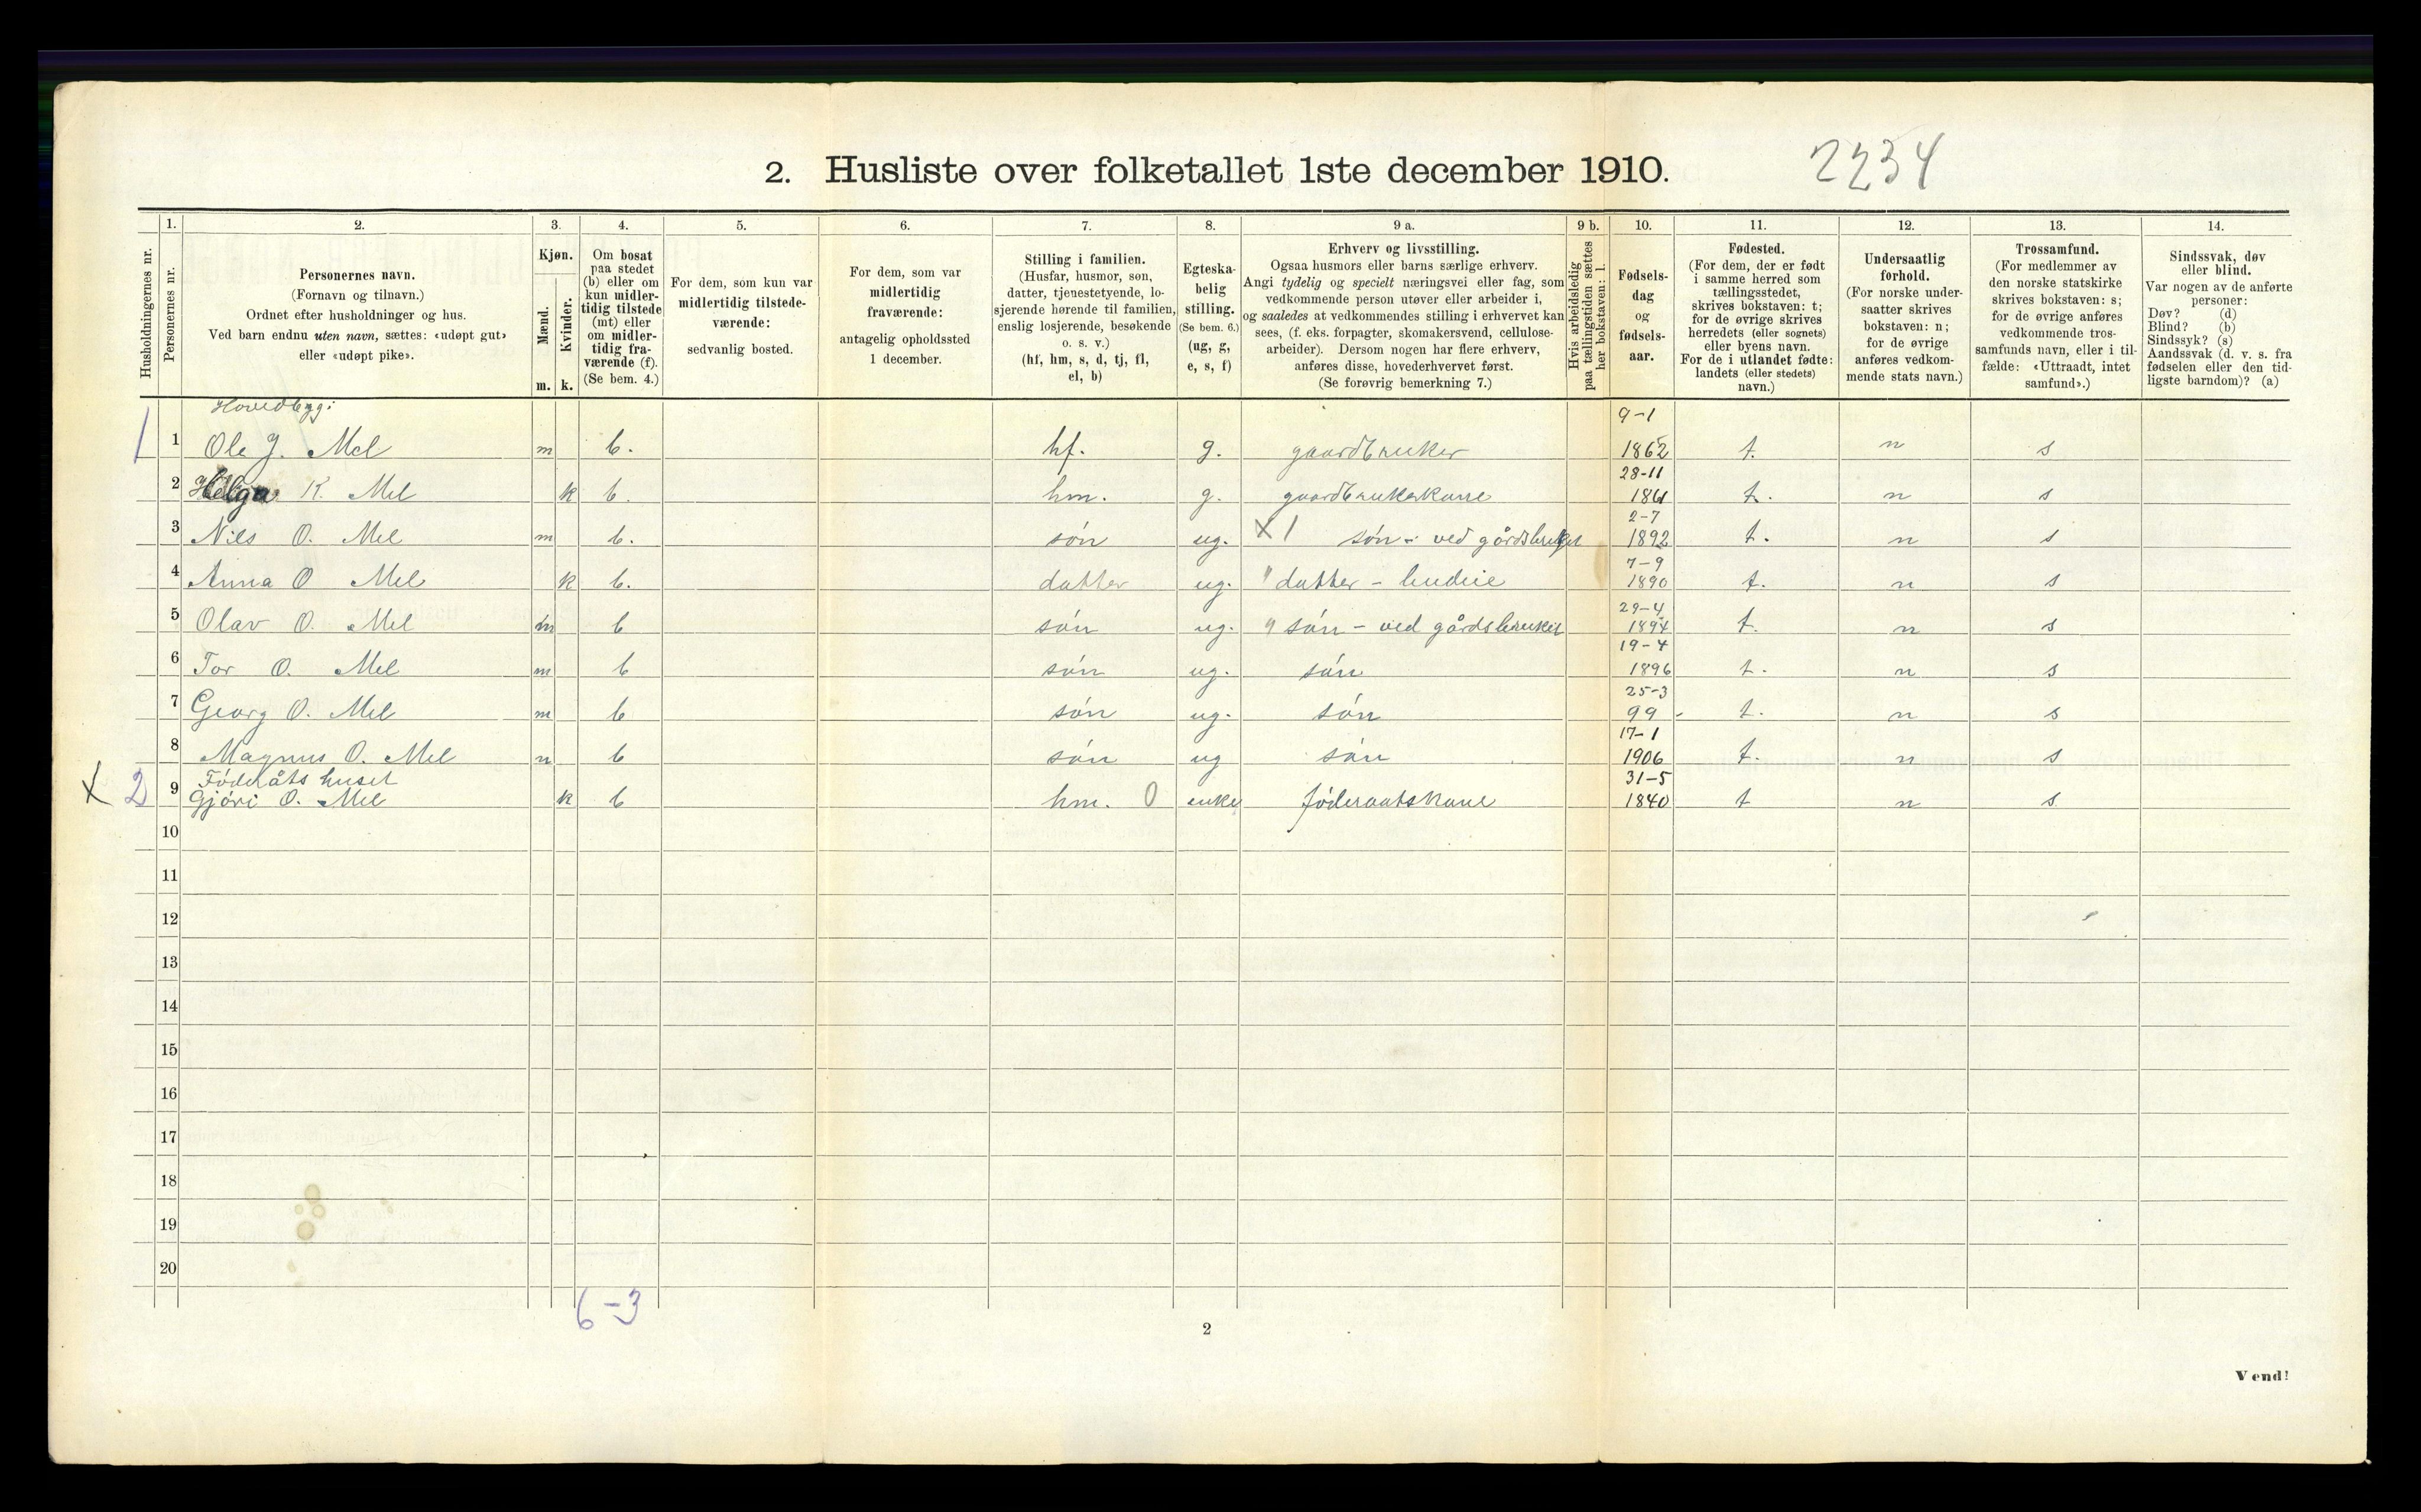 2. Husliste over folketallet 1ste december 1910.
2234
1. 2. 3. 4. 5. 6. 7. 8. 9 a. 9 b. 10. 11. 12. 13. 14.
Husholdningernes nr.
Personernes nr.
Personernes navn.
(Fornavn og tilnavn.)
Ordnet efter husholdninger og hus.
Ved barn endnu uten navn, sættes: «udøpt gut»
eller «udøpt pike».
Kjøn.
Mænd.
Kvinder.
m. k.
Om bosat
paa stedet
(b) eller om
kun midler-
tidig tilstede
(mt) eller
om midler-
tidig fra-
værende (f).
(Se bem. 4.)
For dem, som kun var
midlertidig tilstede-
værende:
sedvanlig bosted.
For dem, som var
midlertidig
fraværende:
antagelig opholdssted
1 december.
Stilling i familien.
(Husfar, husmor, søn,
datter, tjenestetyende, lo-
sjerende hørende til familien,
enslig losjerende, besøkende
o. s. v.)
(hf, hm, s, d, tj, fl,
el, b)
Egteska-
belig
stilling.
(Se bem. 6.)
(ug, g,
e, s, f)
Erhverv og livsstilling.
Ogsaa husmors eller barns særlige erhverv.
Angi tydelig og specielt næringsvei eller fag, som
vedkommende person utøver eller arbeider i,
og saaledes at vedkommendes stilling i erhvervet kan
sees, (f. eks. forpagter, skomakersvend, cellulose-
arbeider). Dersom nogen har flere erhverv,
anføres disse, hovederhvervet først.
(Se forøvrig bemerkning 7.)
Hvis arbeidsledig
paa tællingstiden sættes
her bokstaven: l.
Fødsels-
dag
og
fødsels-
aar.
Fødested.
(For dem, der er født
i samme herred som
tællingsstedet,
skrives bokstaven: t;
for de øvrige skrives
herredets (eller sognets)
eller byens navn.
For de i utlandet fødte:
landets (eller stedets)
navn.)
Undersaatlig
forhold.
(For norske under-
saatter skrives
bokstaven: n;
for de øvrige
anføres vedkom-
mende stats navn.)
Trossamfund.
(For medlemmer av
den norske statskirke
skrives bokstaven: s;
for de øvrige anføres
vedkommende tros-
samfunds navn, eller i til-
fælde: «Uttraadt, intet
samfund».)
Sindssvak, døv
eller blind.
Var nogen av de anførte
personer:
Døv? (d)
Blind? (b)
Sindssyk? (s)
Aandssvak (d. v. s. fra
fødselen eller den tid-
ligste barndom)? (a)
Hovedbyg:
1 1 Ole J. Mel m b. hf. g. gaardbruker 9-1 1862 t. n s
2 Helga K. Mel k b. hm. g. gaardbrukerkone 28-11 1861 t. n s
3 Nils O. Mel m b. søn ug. X 1 søn - ved gårdsbruket 2-7 1892 t. n s
4 Anna O Mel k b. datter ug. " datter - budeie 7-9 1890 t. n s
5 Olav O. Mel m b søn ug. " søn - ved gårdsbruket 29-4 1894 t. n s
6 Tor O. Mel m b søn ug. søn 19-4 1896 t. n s
7 Georg O. Mel m b søn ug. søn 25-3 99 - t. n s
8 Magnus O. Mel m b søn ug søn 17-1 1906 t. n s
Føderåts huset
X 2 9 Gjøri O. Mel k b hm. 0 enke føderaatskone 31-5 1840 t n s
10
11
12
13
14
15
16
17
18
19
20
6-3
2
Vend!